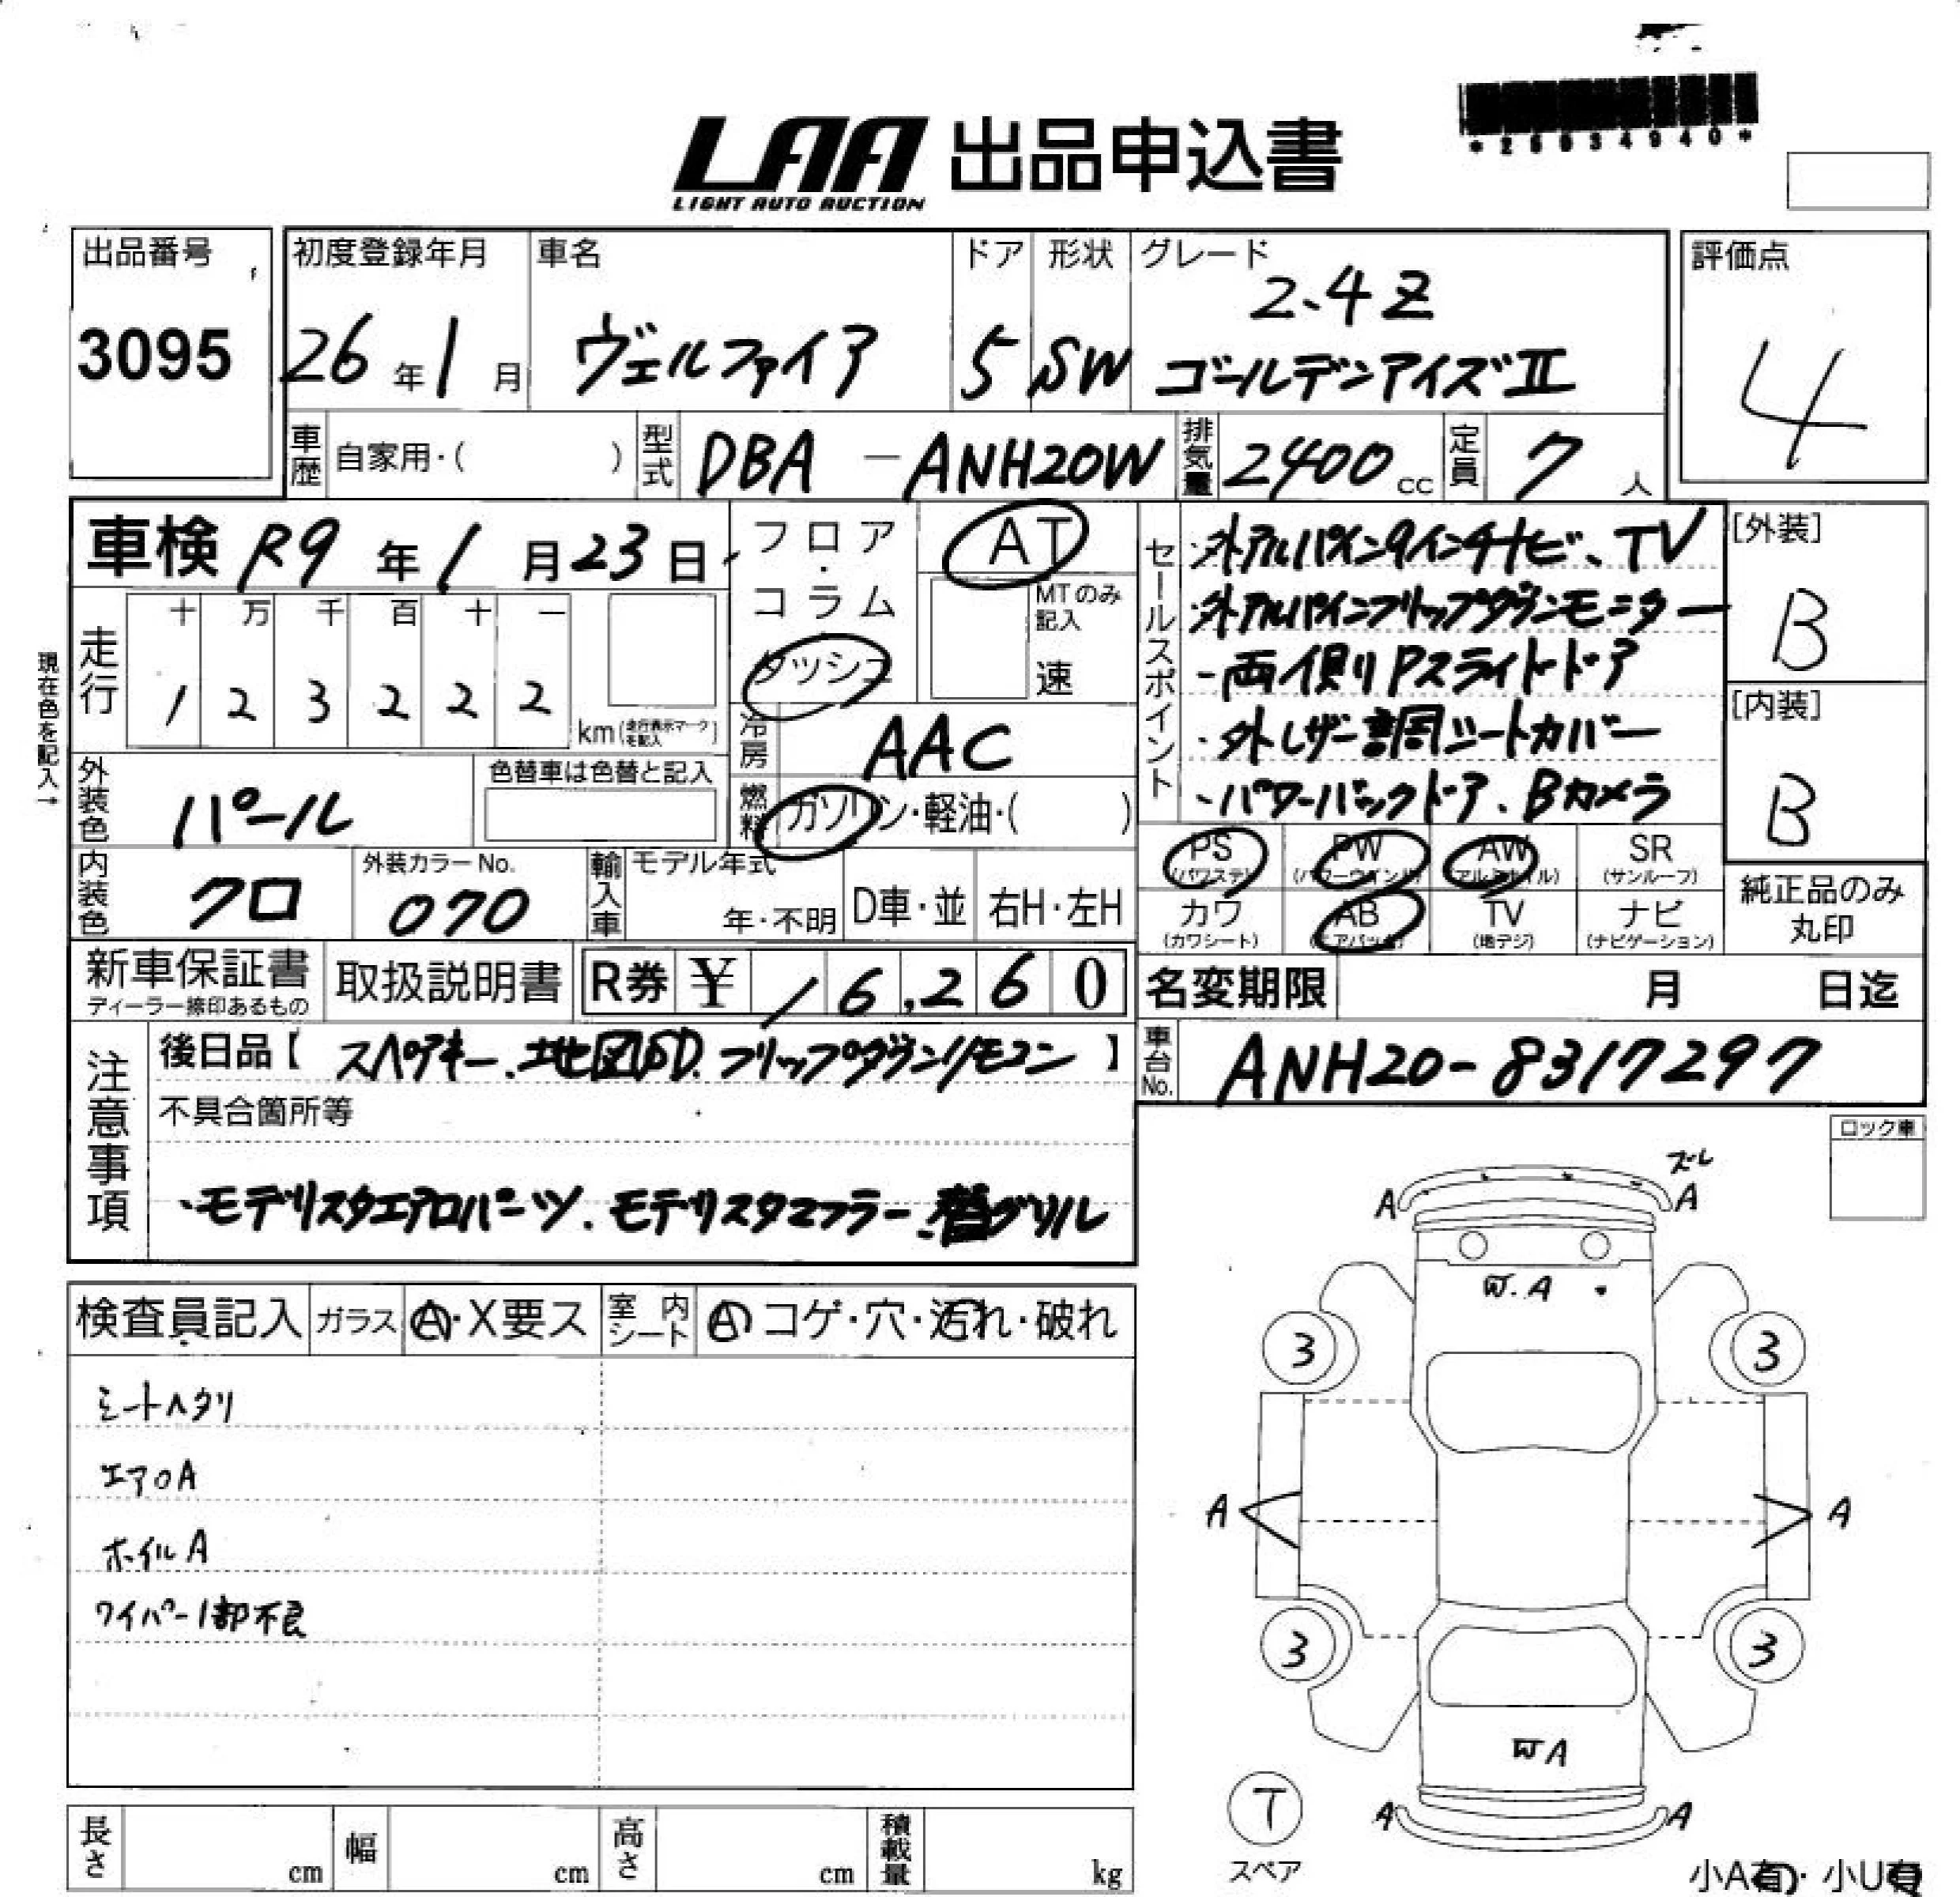 *25034940*
LAA 出品申込書
LIGHT AUTO AUCTION
出品番号
3095
初度登録年月
26年1月
車名
ヴェルファイア
ドア
5
形状
SW
グレード
2.4Z
ゴールデンアイズⅡ
評価点
4
車歴 自家用・( )
型式 DBA-ANH20W
排気量 2400cc
定員 7人
車検 R9年1月23日
フロア・コラム・ダッシュ
AT
MTのみ記入
速
現在色を記入→
走行
十 万 千 百 十 一
1 2 3 2 2 2
km(走行表示マークを記入)
冷房 AAC
燃料 ガソリン・軽油・( )
外装色 パール
色替車は色替と記入
内装色 クロ
外装カラーNo.
070
輸入車
モデル年式
年・不明
D車・並
右H・左H
セールスポイント
・外アルパイン9インチナビ、TV
・外アルパインフリップダウンモニター
・両側Pスライドドア
・外レザー調シートカバー
・パワーバックドア、Bカメラ
[外装]
B
[内装]
B
PS (パワステ)
PW (パワーウインド)
AW (アルミホイル)
SR (サンルーフ)
カワ (カワシート)
AB (エアバック)
TV (地デジ)
ナビ (ナビゲーション)
純正品のみ丸印
新車保証書
ディーラー捺印あるもの
取扱説明書
R券 ¥16,260
名変期限 月 日迄
注意事項
後日品【スペアキー、地図SD、フリップダウンリモコン】
不具合箇所等
・モデリスタエアロパーツ、モデリスタマフラー、替グリル
車台No. ANH20-8317297
ロック車
検査員記入
ガラス A・X要ス
室内シート A コゲ・穴・汚れ・破れ
シートヘタリ
エアロA
ホイルA
ワイパー1部不良
ズレ
A
A
W.A
3
3
A
A
3
3
W A
T
スペア
A
A
小A有・小U有
長さ cm
幅 cm
高さ cm
積載量 kg